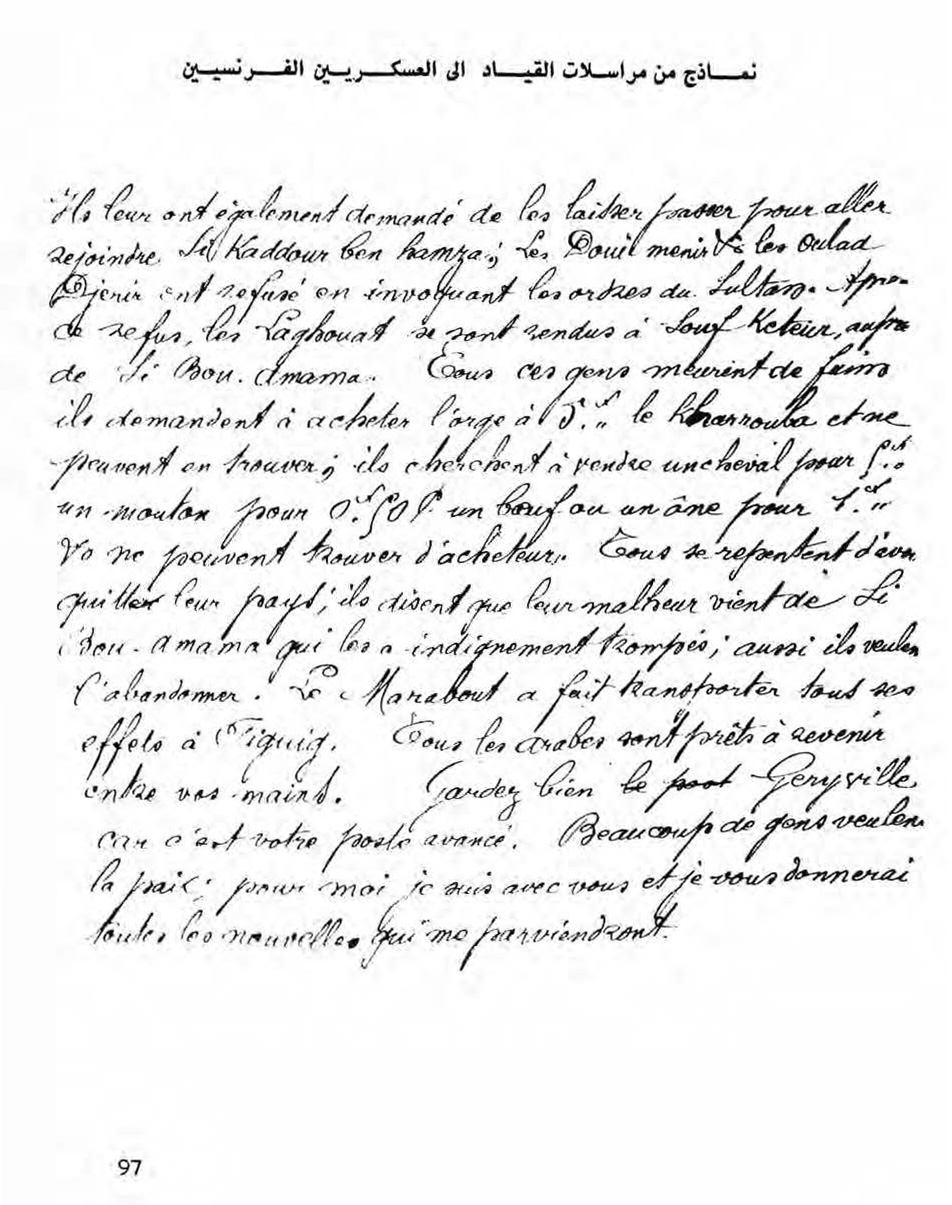 نماذج من مراسلات القياد الى العسكريين الفرنسيين
Ils leur ont également demandé de les laisser passer pour aller
rejoindre Si Kaddour ben hamza; Les Douil menir & les Oulad
Djerir ont refusé en invoquant les ordres du Sultan. Après
ce refus, les Laghouat se sont rendus à Souf Kcteur, auprès
de Si Bou. Amama. Tous ces gens meurent de faim
ils demandent à acheter l'orge à 5.f " le Kharrouba et ne
peuvent en trouver; ils cherchent à vendre un cheval pour
un mouton pour 0.f50 un bœuf ou un âne pour 1.f "
Vo ne peuvent trouver d'acheteur. Tous se repentent d'avoir
quitter leur pays; ils disent que leur malheur vient de Si
Bou. Amama qui les a indignement trompés; aussi ils veulen
l'abandonner. Le Marabout a fait transporter tous ses
effets à Figuig. Tous les Arabes sont prêts à revenir
entre vos mains. Gardez bien le Geryville
car c'est votre poste avancé. Beaucoup de gens veulen
la paix; pour moi je suis avec vous et je vous donnerai
toutes les nouvelles qui me parviendront.
97